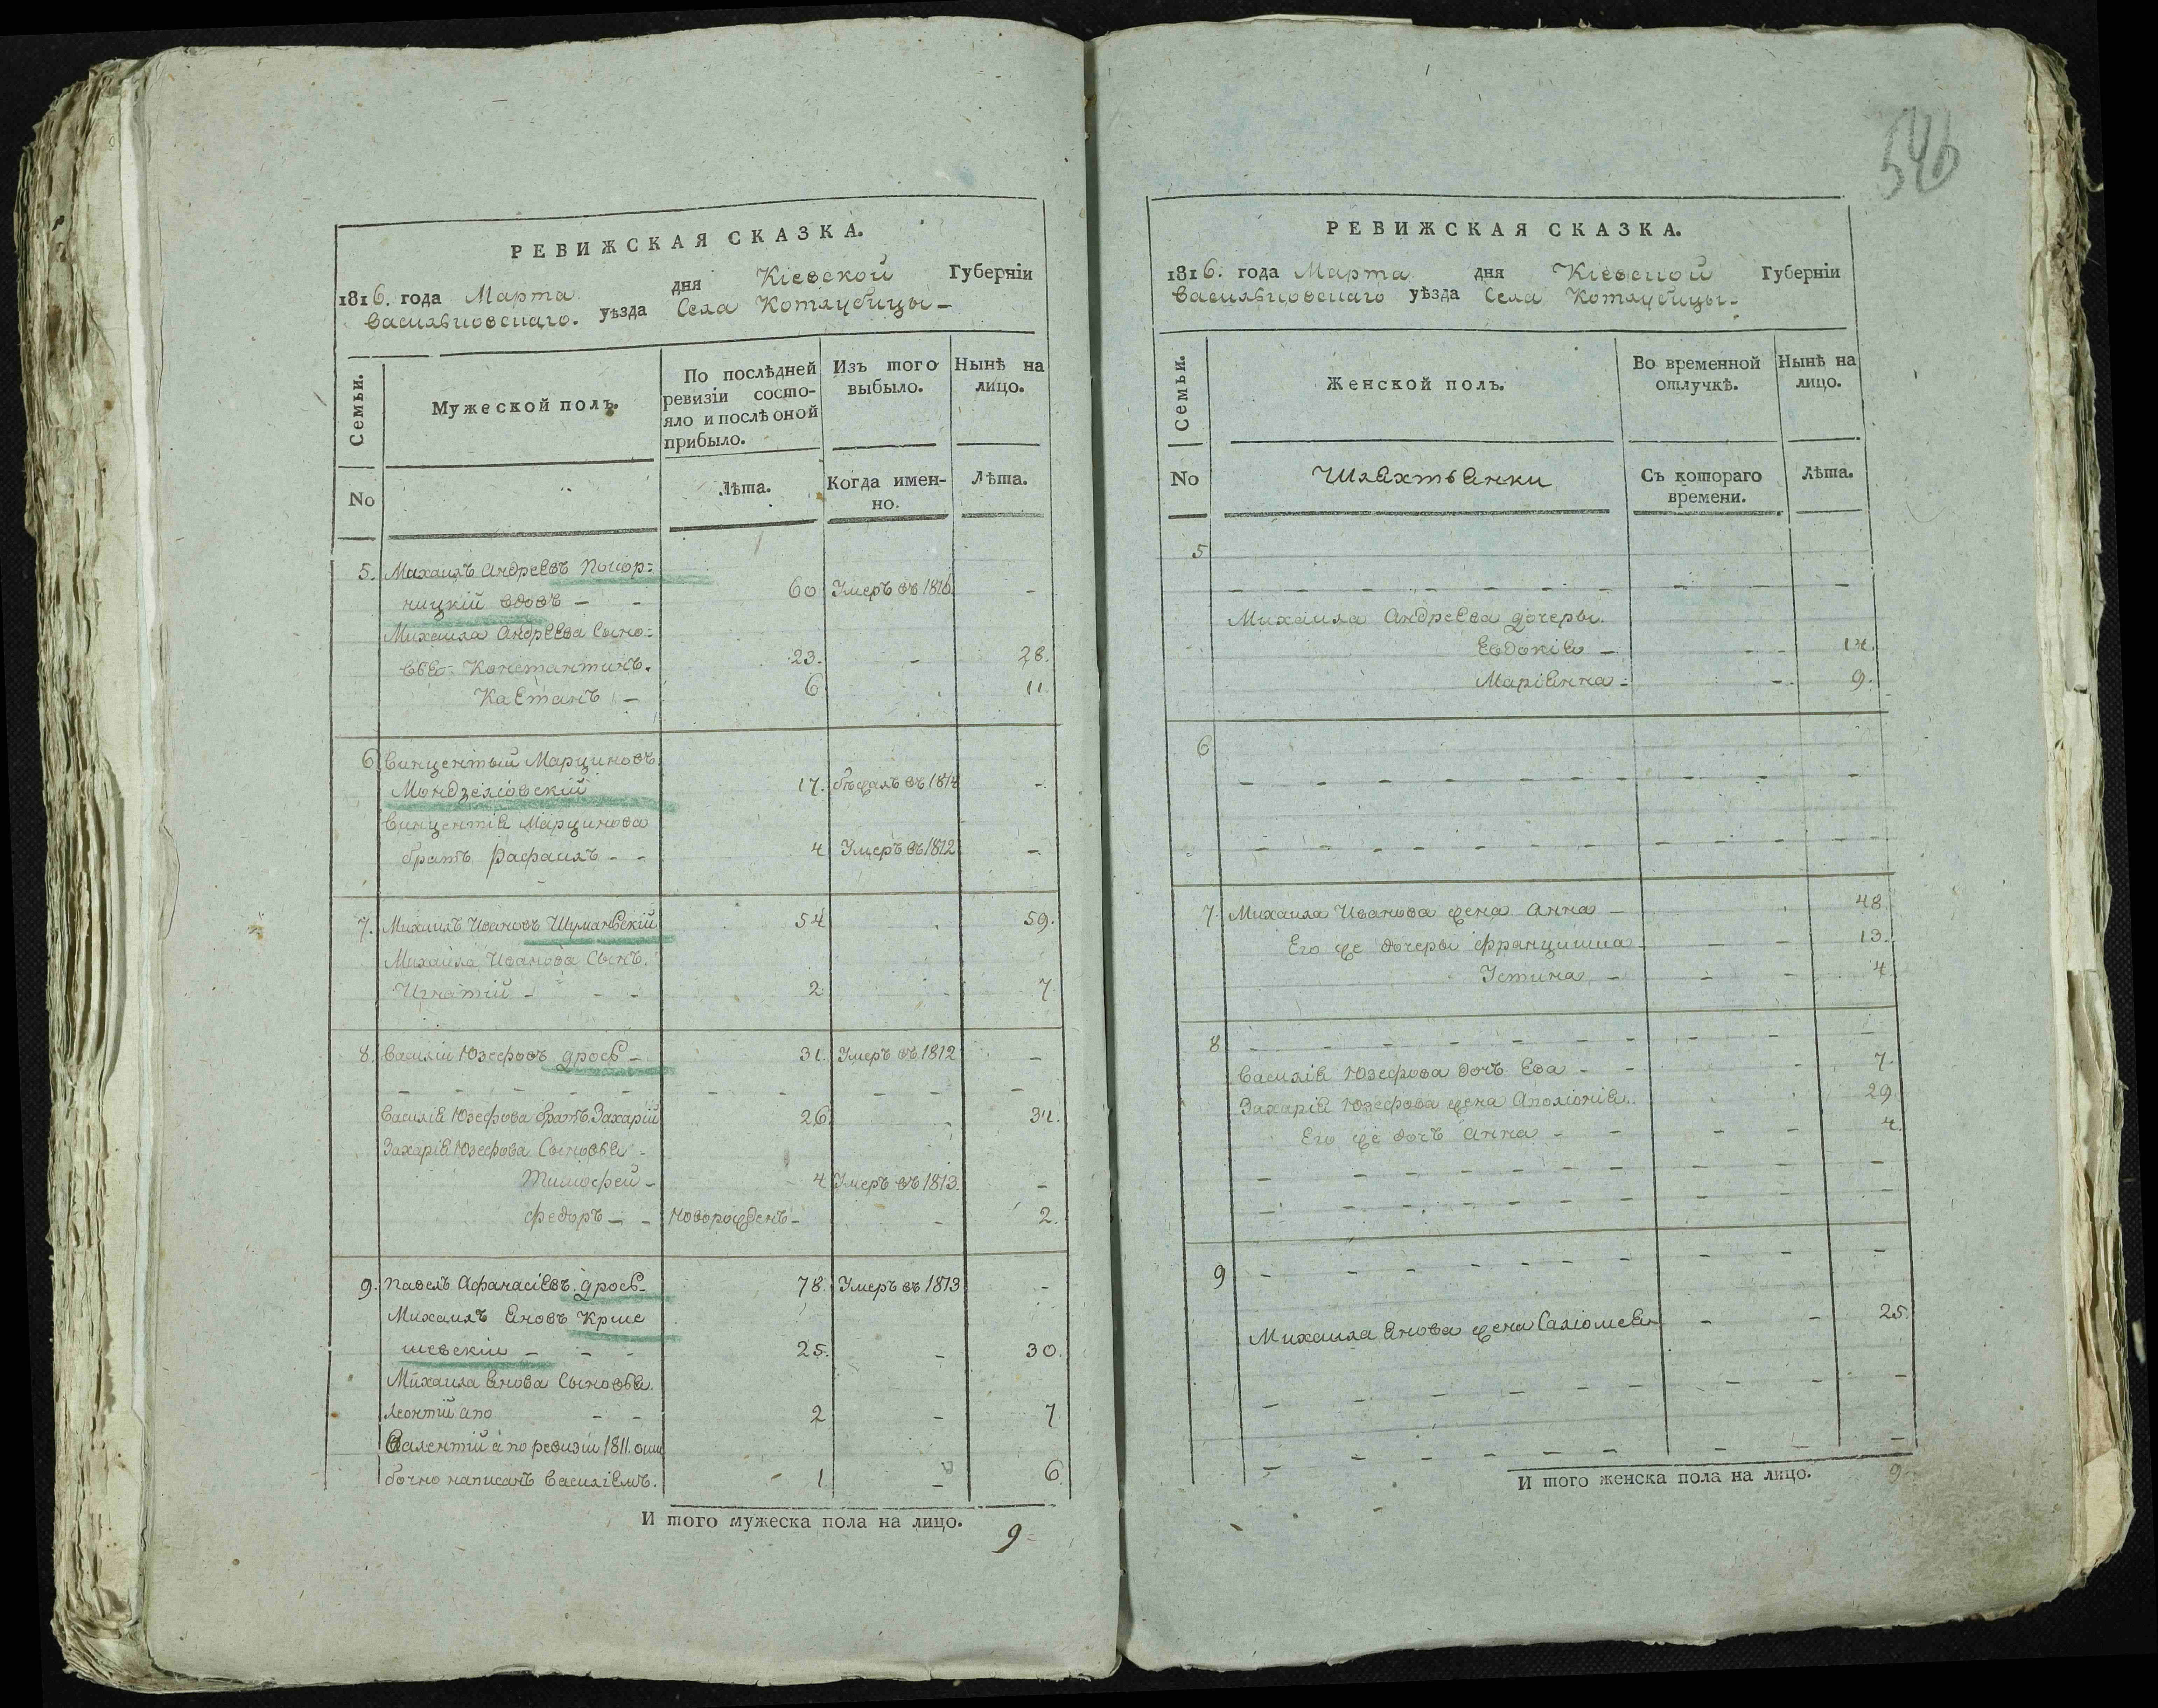 РЕВИЖСКАЯ СКАЗКА.
1816. года Марта дня Кіевской Губерніи
Васильковскаго. уѣзда Села Котлубицы
Семьи.
Мужеской полъ.
По послѣдней ревизіи состо-
яло и послѣ оной
прибыло.
Изъ того
выбыло.
Нынѣ на
лицо.
No
Лѣта.
Когда имен-
но.
Лѣта.
5. Михаилъ Андреевъ
ницкій вдовъ 60 Умеръ въ 1816 -
Михаила Андреева Сыно-
вья Константинъ. 23. - 28.
Каетанъ - 6 11
6 Винцентый Марциновъ
17. бѣжалъ въ 1814 -
Винцентія Марцинова
братъ Рафаилъ - - 4 Умеръ въ 1812 -
7. Михаилъ Ивановъ Шуманскій 54 59.
Михаила Иванова Сынъ.
Игнатій - - - 2 7
8. Василій Юзефовъ 31. Умеръ въ 1812 -
Василія Юзефова братъ Захарій 26 31.
Захарія Юзефова Сыновья
Тимофей - 4 Умеръ въ 1813. -
Федоръ - - новорожденъ - - 2.
9. Павелъ Афанасіевъ 78. Умеръ въ 1813 -
Михаилъ Яновъ
шевскій - - - 25. - 30.
Михаила Янова Сыновья.
Леонтій - - 2 - 7
Валентій а по ревизіи 1811. оши
бочно написанъ Василіемъ. 1. - 6
И того мужеска пола на лицо. 9
546
РЕВИЖСКАЯ СКАЗКА.
1816. года Марта дня Кіевской Губерніи
Васильковскаго уѣзда Села Котлубицы
Семьи.
Женской полъ.
Во временной
отлучкѣ.
Нынѣ на
лицо.
No
Шляхтянки
Съ котораго
времени.
Лѣта.
5
Михаила Андреева дочеры.
Евдокія - - - 14.
Маріянна - - 9.
6
7. Михаила Иванова жена Анна - 48
Его же дочеры Францишка - - - 13.
Устина - - - 4
8
Василія Юзефова дочь Ева - - - 7.
Захарія Юзефова жена Аполіонія. 29
Его же дочь Анна - - - - 4.
9
Михаила Янова жена Саліомея - - 25.
И того женска пола на лицо. 9